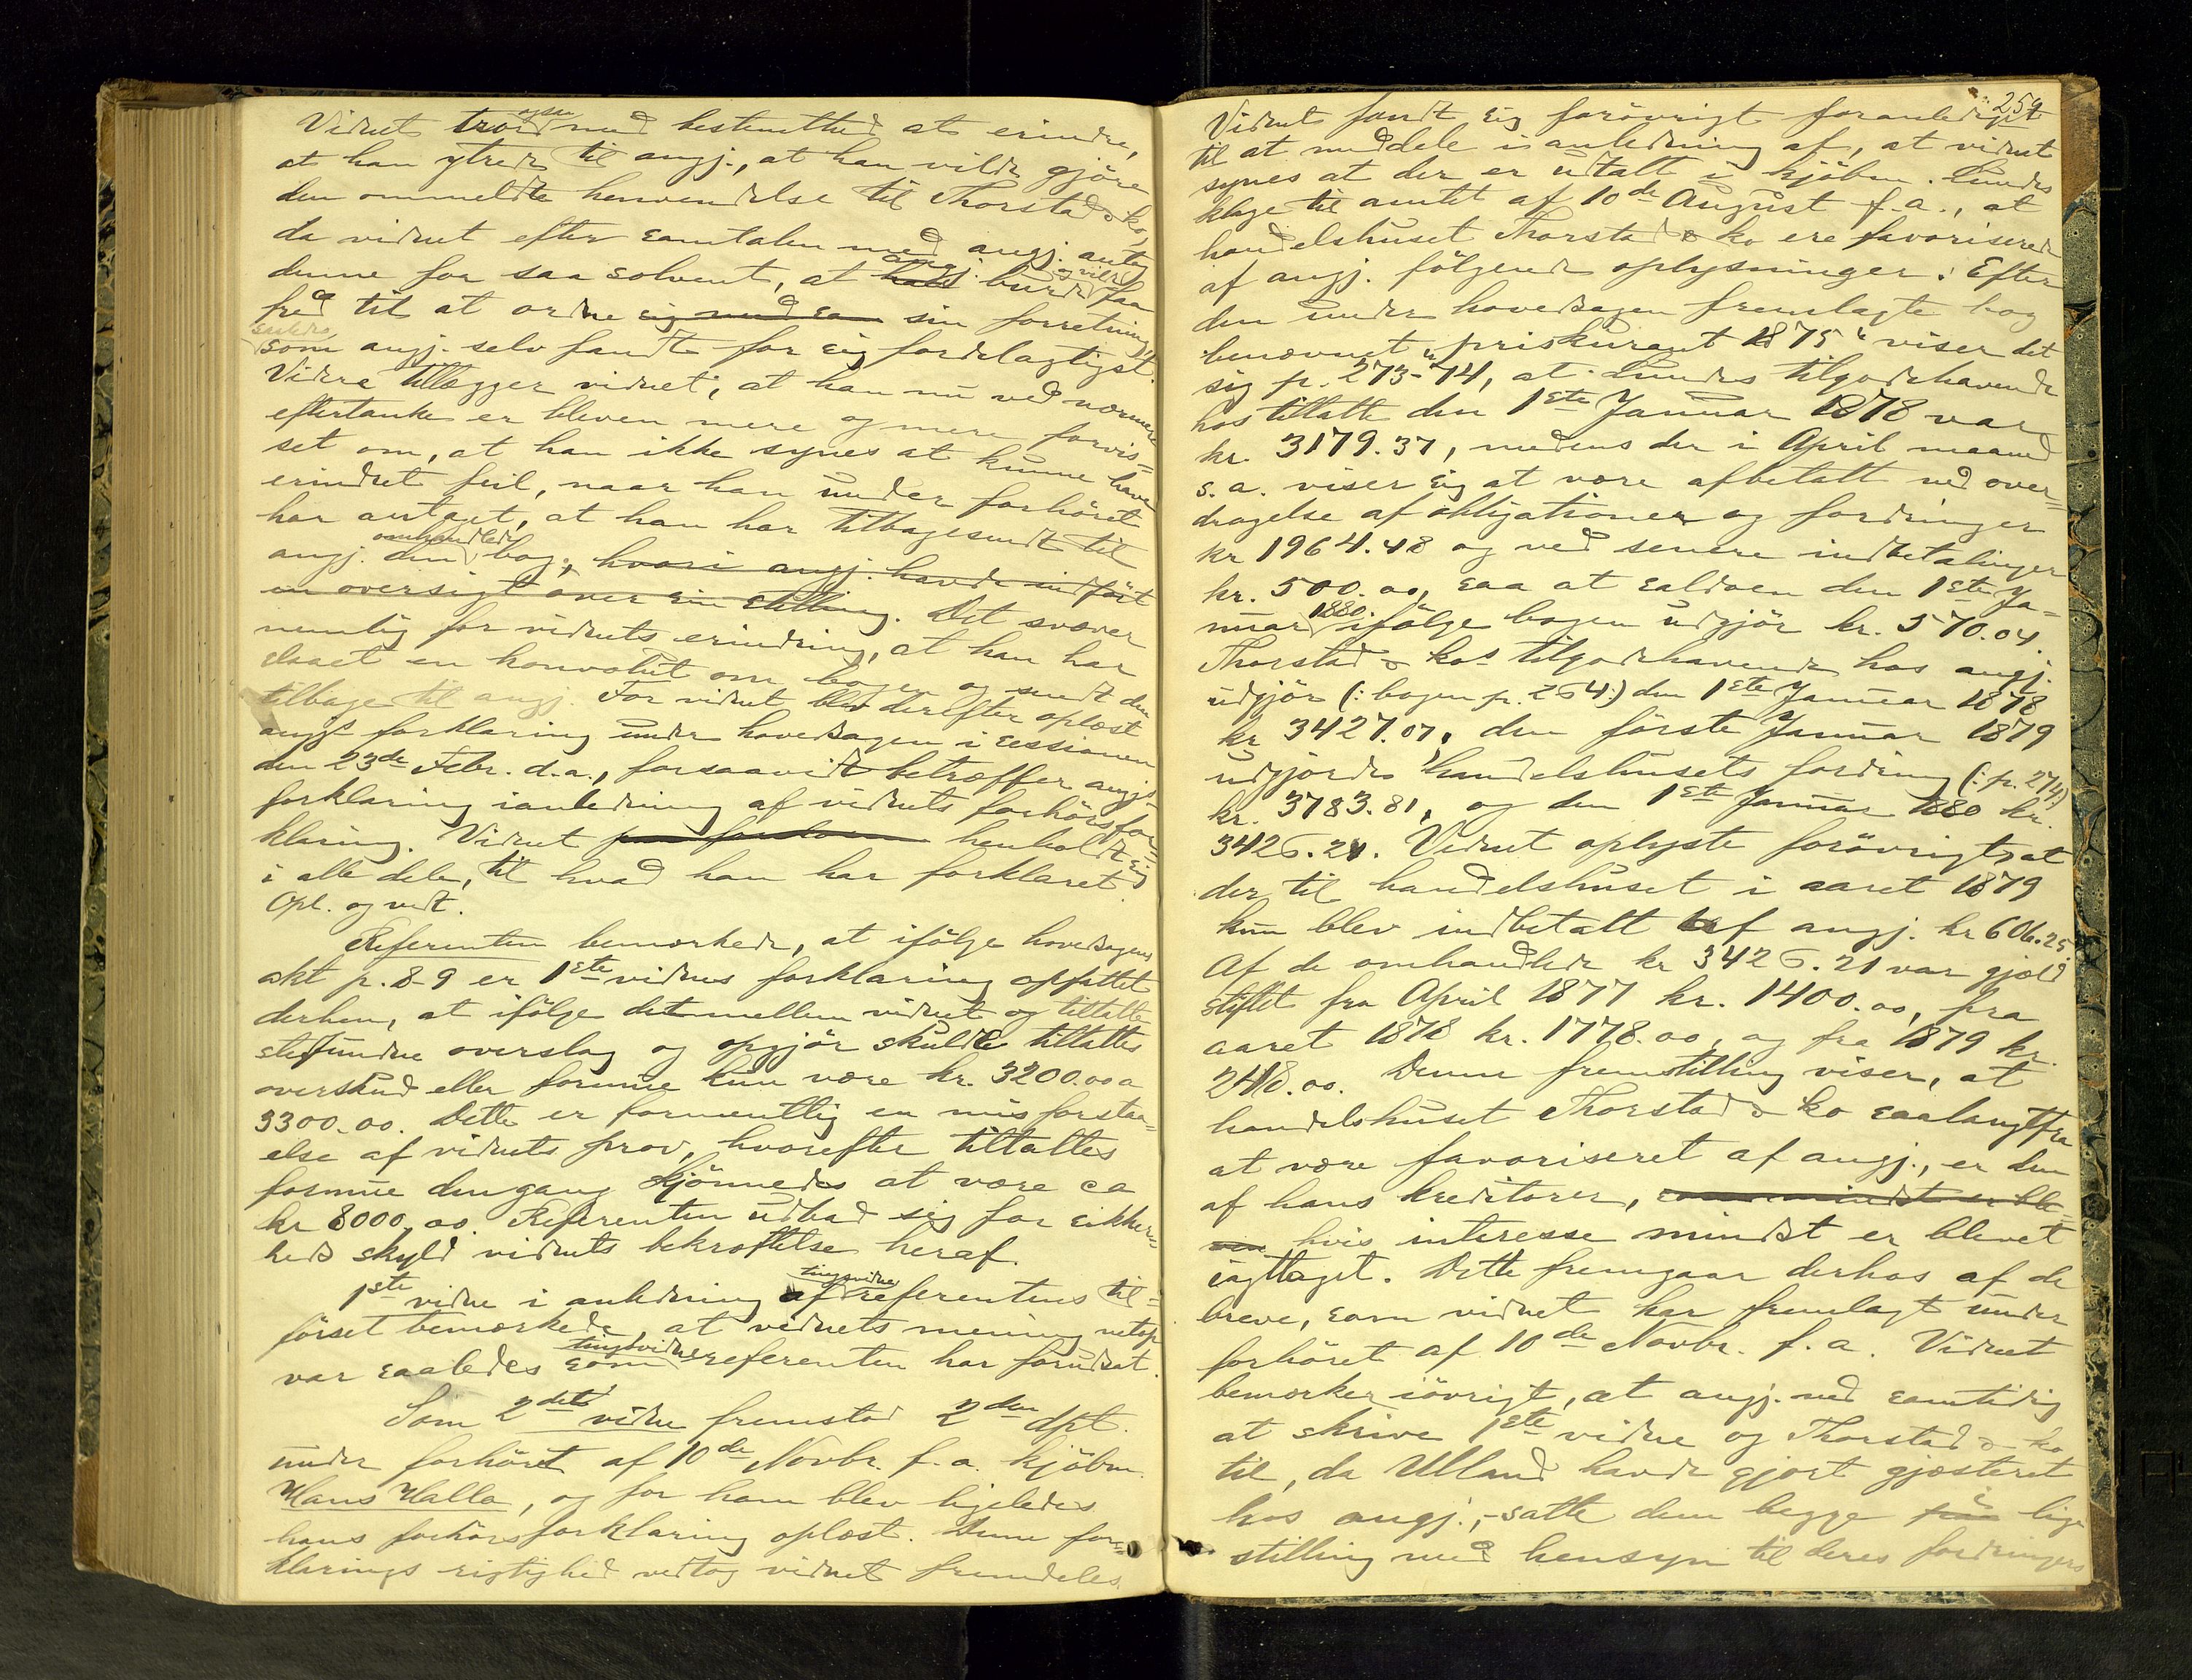 Vidnet troede ogsaa med bestemthed at erindre,
at han ytrede til angj., at han vilde gjöre
den ommeldte henvendelse til Thorstad & ko,
da vidnet efter samtalen med angj. antog
denne for saa solvent, at hans angj. burde og vilde faa
fred til at ordne sig med sa sin forretning
saaledes som angj. selv fandt for sig fordelagtigst.
Videre tillægger vidnet, at han nu ved nærmere
eftertanke er bleven mere og mere forvis=
set om, at han ikke synes at kunne have
erindret feil, naar han under forhöret
har antaget, at han har tilbagesendt til
angj. den omhandlede bog, hvori angj. havde indfört
en oversigt over sin stilling. Det svæver
nemlig for vidnets erindring, at han har
slaaet en konvolut om bogen og sendt den
tilbage til angj. For vidnet blev derefter oplæst
angjs forklaring under hovedsagen i sessionen
den 23de Febr. d.a., forsaavidt betræffer angjs
forklaring i anledning af vidnets forhörsfor=
klaring. Vidnet henholdt sig
i alle dele, til hvad han har forklaret.
Opl. og vedt.
Referenten bemærkede, at ifölge hovedsagens
akt p. 8-9 er 1ste vidnes forklaring opfattet
derhen, at ifölge det mellem vidnet og tiltalte
stedfundne overslag og opgjör skulde tiltaltes
overskud eller formue kun være kr. 3200.00 a
3300.00. Dette er formentlig en misforstaa=
else af vidnets prov, hvorefter tiltaltes
formue dengang skjönnedes at være ca
kr 8000.00. Referenten udbad sig for sikker=
heds skyld vidnets bekræftelse heraf.
1ste vidne i anledning af tingsvidne referentens til=
förset bemærkede, at vidnets mening netop
var saaledes som tingsvidnereferenten har forudsat.
Som 2det vidne fremstod 2den dpt.
under forhöret af 10de Novbr. f.a. kjöbm.
Hans Halla, og for ham blev ligeledes
hans forhörsforklaring oplæst. Denne for=
klarings rigtighed vedtog vidnet fremdeles.
259
Vidnet fandt sig forövrigt foranlediget
til at meddele i anledning af, at vidnet
synes at der er udtalt i kjöbm. Lundes
klage til amtet af 10de August f.a., at
handelshuset Thorstad & ko ere favoriserede
af angj. fölgende oplysninger: Efter
den under hovedsagen fremlagte bog
benævnet "priskurant 1875" viser det
sig p. 273-74, at Lundes tilgodehavende
hos tiltalte den 1ste Januar 1878 var
kr. 3179.37, medens der i April maaned
s.a. viser sig at være afbetalt ved over=
dragelse af obligationer og fordringer
kr 1964.48 og ved senere indbetalinger
kr. 500.00, saa at saldoen den 1ste Ja=
nuar 1880 ifölge bogen udgjör kr. 570.04.
Thorstad & kos tilgodehavende hos angj.
udgjör (: bogen p. 264:) den 1ste Januar 1878
kr 3427.07, den förste Januar 1879
udgjorde handelshusets fordring (: p. 274:)
kr. 3783.81, og den 1ste Januar 1880 kr.
3426.21. Vidnet oplyste forövrigt, at
der til handelshuset i aaret 1879
kun blev indbetalt af angj. kr 606.25.
Af de omhandlede kr 3426.21 var gjæld
stiftet fra April 1877 kr. 1400.00, fra
aaret 1878 kr. 1778.00, og fra 1879 kr.
248.00. Denne fremstilling viser, at
handelshuset Thorstad & ko saalangtfra
at være favoriseret af angj., er den
af hans kreditorer, som mindst er ble=
ven hvis interesse mindst er blevet
iagttaget. Dette fremgaar derhos af de
breve, som vidnet har fremlagt under
forhöret af 10de Novbr. f.a. Vidnet
bemærker iövrigt, at angj. ved samtidig
at skrive 1ste vidne og Thorstad & ko
til, da Ulland havde gjort gjæsteret
hos angj., satte dem begge i lige
stilling med hensyn til deres fordringers